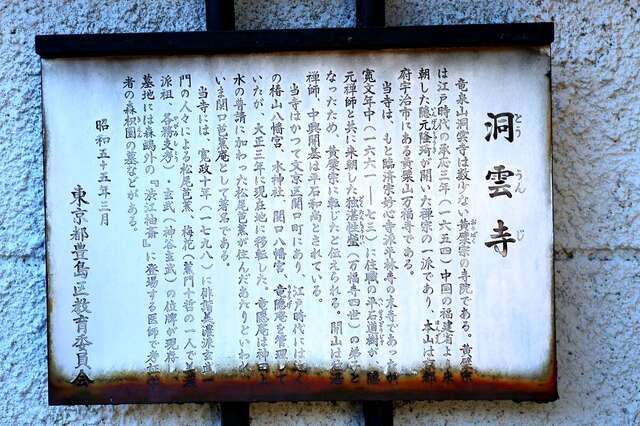 洞雲寺
とう うん じ
竜泉山洞雲寺は数少ない黄檗宗の寺院である。黄檗宗
は江戸時代の承応三年(一六五四)中国の福建省より来
朝した隠元隆琦が開いた禅宗の一派であり、本山は京都
府宇治市にある黄檗山万福寺である。
当寺は、もと臨済宗妙心寺派
寛文年中(一六六一―七三)に住職の平石道樹が、隠
元禅師と共に来朝した独湛性瑩(万福寺四世)の弟子と
なったため、黄檗宗に転じたと伝えられる。開山は独湛
禅師、中興開基は平石和尚とされている。
当寺はかつて文京区関口町にあり、江戸時代には近く
の椿山八幡宮、水神社、関口八幡宮、竜隠庵を管理して
いたが、大正三年に現在地に移転した。竜隠庵は神田上
水の普請に加わった松尾芭蕉が住んだあたりといわれ、
いま関口芭蕉庵として著名である。
当寺には、寛政十年(一七九八)に俳諧美濃派玄武一
門の人々による松尾芭蕉、梅花(蕉門十哲の一人で美濃
派祖、各務支考)、玄武(神谷玄武)の位牌が現存し、
墓地には森鷗外の『渋江抽斎』に登場する医師で考証学
者の森枳園の墓などがある。
昭和五十五年三月
東京都豊島区教育委員会